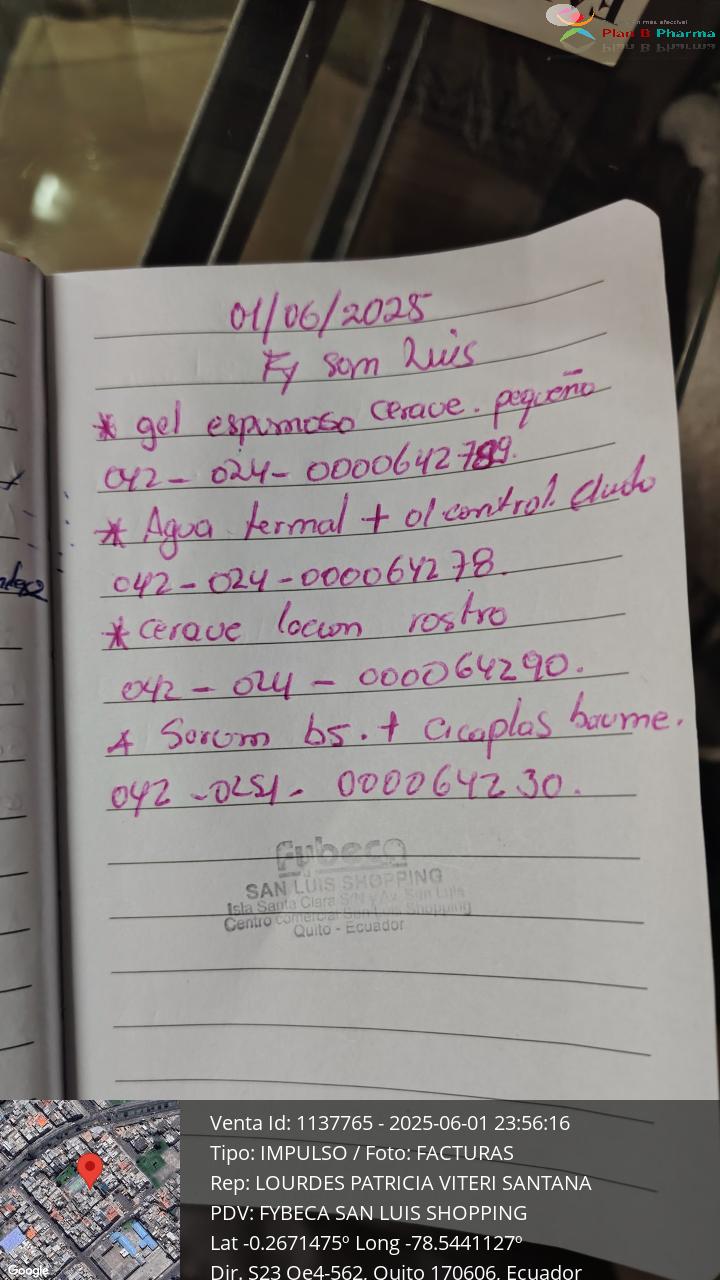 Plan B Pharma
01/06/2025
Fy San Luis
* gel espumoso cerave. pequeño
042-024-0000642789.
* Agua termal + ol control. duo
042-024-000064278.
* cerave locion rostro
042-024-000064290.
* Serum b5. + cicaplas baume.
042-0251- 000064230.
Fybeca
SAN LUIS SHOPPING
Isla Santa Clara S/N y Av. San Luis
Centro Comercial San Luis Shopping
Quito - Ecuador
Venta Id: 1137765 - 2025-06-01 23:56:16
Tipo: IMPULSO / Foto: FACTURAS
Rep: LOURDES PATRICIA VITERI SANTANA
PDV: FYBECA SAN LUIS SHOPPING
Lat -0.2671475º Long -78.5441127º
Dir. S23 Oe4-562, Quito 170606, Ecuador
Google